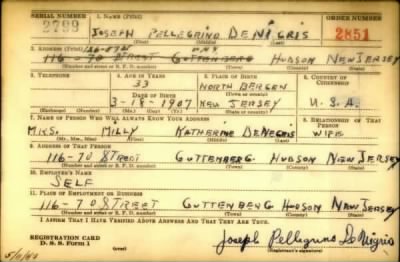 SERIAL NUMBER 1. NAME (Print) ORDER NUMBER
2799 JOSEPH PELLEGRINO DE NIGRIS 2851
(First) (Middle) (Last)
2. ADDRESS (Print)
116-70 STREET GUTTENBERG HUDSON NEW JERSEY
(Number and street or R. F. D. number) (Town) (County) (State)
3. TELEPHONE 4. AGE IN YEARS 5. PLACE OF BIRTH 6. COUNTRY OF CITIZENSHIP
33 NORTH BERGEN
DATE OF BIRTH (Town or county)
3-18-1907 NEW JERSEY U.S.A.
(Exchange) (Number) (Mo.) (Day) (Yr.) (State or country)
7. NAME OF PERSON WHO WILL ALWAYS KNOW YOUR ADDRESS 8. RELATIONSHIP OF THAT PERSON
MRS. MILLY KATHERINE DENEGRIS WIFE
(Mr., Mrs., Miss) (First) (Middle) (Last)
9. ADDRESS OF THAT PERSON
116-70 STREET GUTTENBERG HUDSON NEW JERSEY
(Number and street or R. F. D. number) (Town) (County) (State)
10. EMPLOYER'S NAME
SELF
11. PLACE OF EMPLOYMENT OR BUSINESS
116-70 STREET GUTTENBERG HUDSON NEW JERSEY
(Number and street or R. F. D. number) (Town) (County) (State)
I AFFIRM THAT I HAVE VERIFIED ABOVE ANSWERS AND THAT THEY ARE TRUE.
REGISTRATION CARD
D. S. S. Form 1 Joseph Pellegrino De Nigris
(Registrant's signature)